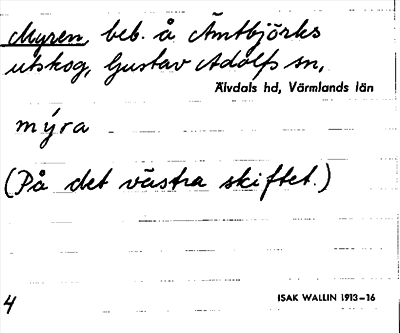 Myren, beb. å Ämtbjörks
utskog, Gustav Adolfs sn,
Älvdals hd, Värmlands län
mýra
(På det västra skiftet.)
4
ISAK WALLIN 1913–16